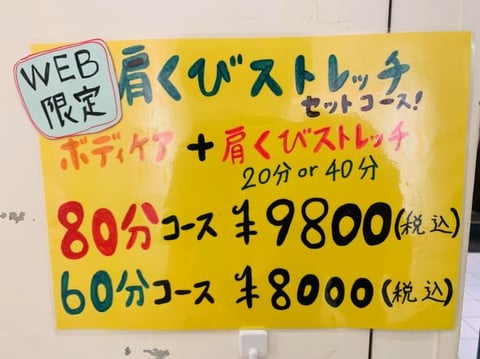 WEB
限定
肩くびストレッチ
セットコース!
ボディケア + 肩くびストレッチ
20分 or 40分
80分コース ¥9800(税込)
60分コース ¥8000(税込)